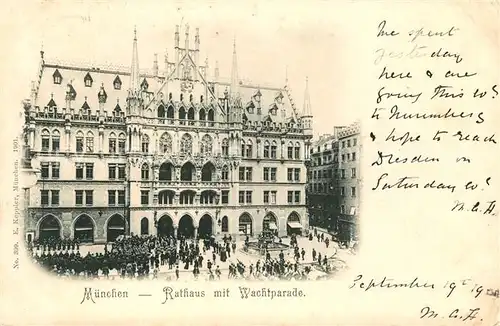 We spent
yesterday
here & are
going this
to Nuremberg
& hope to reach
Dresden on
Saturday
M.A.H.
München — Rathaus mit Wachtparade.
September 19th
M.A.H.
No. 309. E. Keppler, München. 1901.